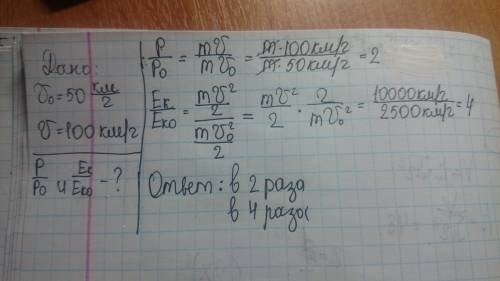 Дано:
υ₀ = 50 км/г
υ = 100 км/г
P/P₀ и Eк/Eк₀ - ?
P/P₀ = mυ/mυ₀ = m·100 км/г / m·50 км/г = 2
Eк/Eко = (mυ²/2)/(mυ₀²/2) = mυ²/2 · 2/mυ₀² = 10000 км/г / 2500 км/г = 4
Ответ: в 2 раза
в 4 раза